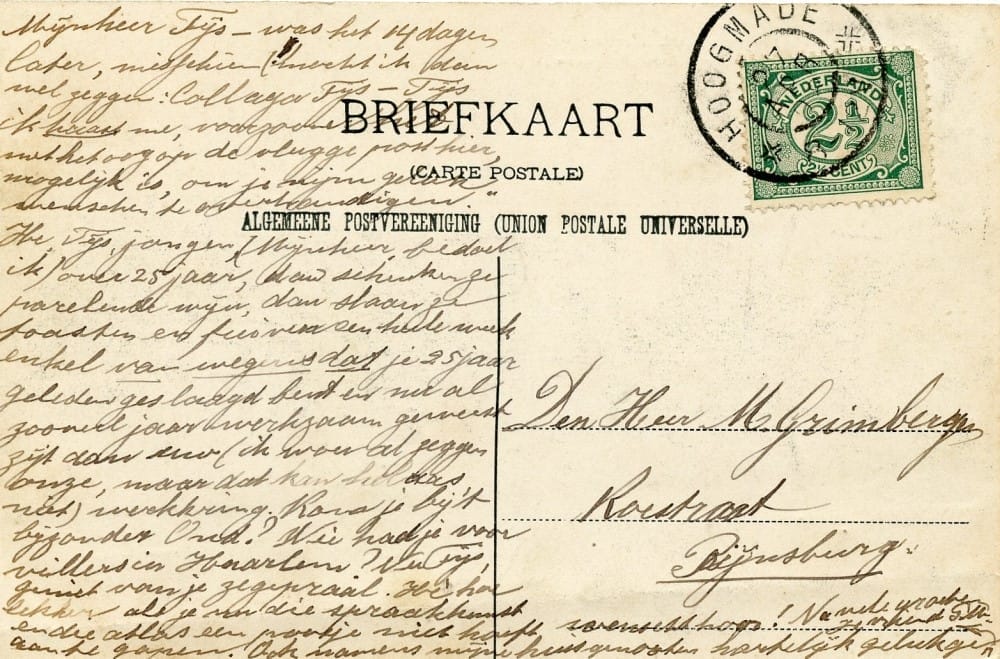 Mijnheer Tijs – was het 14 dagen
later, misschien (!) mocht ik dan
wel zeggen: Collega Tijs – Tijs
ik haast me, voorzoover
met het oog op de vlugge post hier,
mogelijk is, om je mijn
menschen te overhandigen."
Hé, Tijs, jongen (Mijnheer, bedoel
ik) over 25 jaar, dan schenken ze
parelende wijn, dan slaan ze
toasten en een heele week
enkel van wegens dat je 25 jaar
geleden geslaagd bent en nu al
zooveel jaar werkzaam geweest
zijt aan uw (ik wou al zeggen
onze, maar dat kan helaas
niet) werkkring. Kon je bij't
bijzonder Ond.? Wie had je voor
in Haarlem? Nu Tijs,
geniet van je zegepraal. Hé hoe
lekker als je nu die spraakkunst
en die atlas een pootje niet hoeft
aan te gapen. Ook namens mijne huisgenooten hartelijk geluk
wenscht hoor! Na vele groeten
je vriend
BRIEFKAART
(CARTE POSTALE)
ALGEMEENE POSTVEREENIGING (UNION POSTALE UNIVERSELLE)
HOOGMADE
NEDERLAND
2½
2½ CENT
Den Heer M. Grimbergen
Koestraat
Rijnsburg.